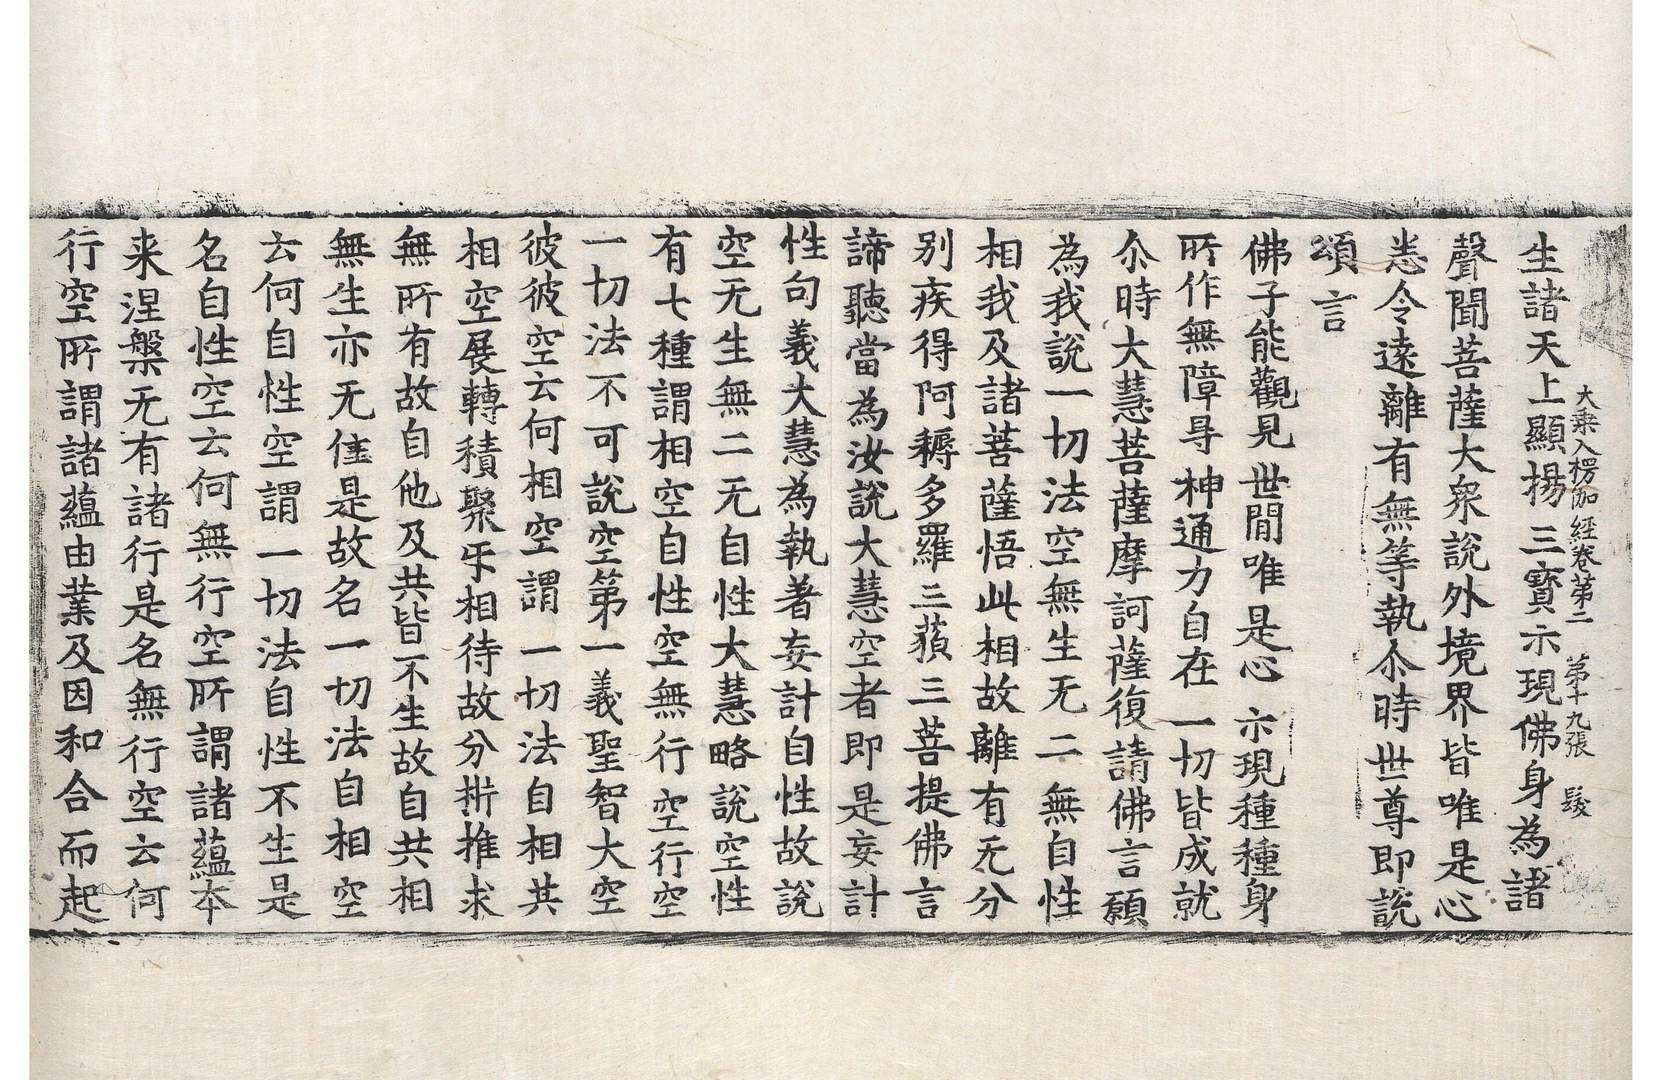 大乘入楞伽經卷第二　第十九張　髮
生諸天上顯揚三寶示現佛身為諸
聲聞菩薩大衆說外境界皆唯是心
悉令遠離有無等執尒時世尊即說
頌言
佛子能觀見世間唯是心　示現種種身
所作無障㝵　神通力自在　一切皆成就
尒時大慧菩薩摩訶薩復請佛言願
為我說一切法空無生无二無自性
相我及諸菩薩悟此相故離有无分
別疾得阿耨多羅三藐三菩提佛言
諦聽當為汝說大慧空者即是妄計
性句義大慧為執著妄計自性故說
空无生無二无自性大慧略說空性
有七種謂相空自性空無行空行空
一切法不可說空第一義聖智大空
彼彼空云何相空謂一切法自相共
相空展轉積聚㸦相待故分析推求
無所有故自他及共皆不生故自共相
無生亦无住是故名一切法自相空
云何自性空謂一切法自性不生是
名自性空云何無行空所謂諸蘊本
来涅槃无有諸行是名無行空云何
行空所謂諸蘊由業及因和合而起